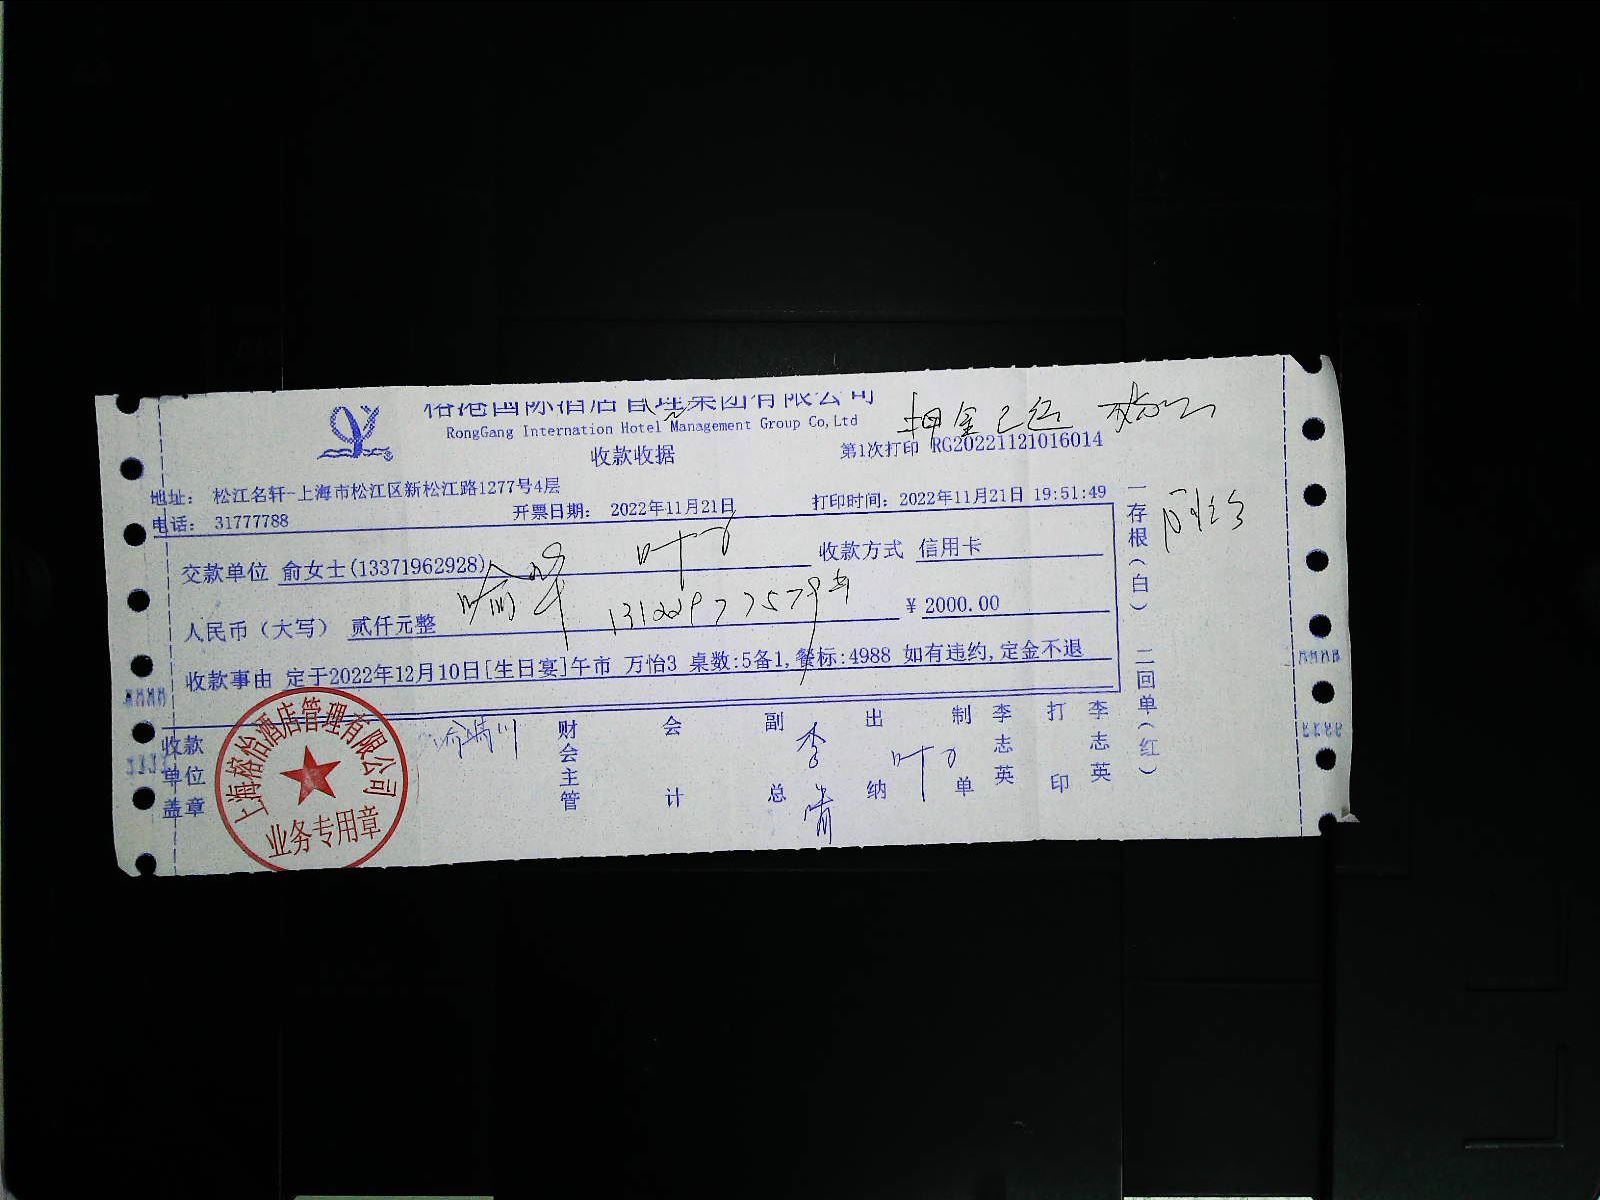 国际酒店管理集团有限公司
RongGang Internation Hotel Management Group Co,Ltd
收款收据
押金已
第1次打印 RG20221121016014
地址： 松江名轩-上海市松江区新松江路1277号4层
电话： 31777788
开票日期： 2022年11月21日
打印时间：2022年11月21日 19:51:49
交款单位 俞女士(13371962928)
收款方式 信用卡
人民币（大写） 贰仟元整
13122977579
¥ 2000.00
收款事由 定于2022年12月10日[生日宴]午市 万怡3 桌数:5备1,餐标:4988 如有违约,定金不退
收款单位盖章
财会主管
会计
副总
出纳
制单
李志英
打印
李志英
一存根（白） 二回单（红）
上海榕怡酒店管理有限公司
业务专用章